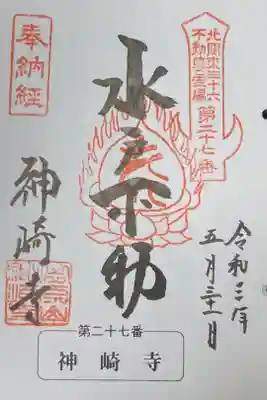 奉納経
北関東三十六
不動尊霊場
第二十七番
水戸不動
神崎寺
令和三年
五月三十一日
第二十七番
神崎寺